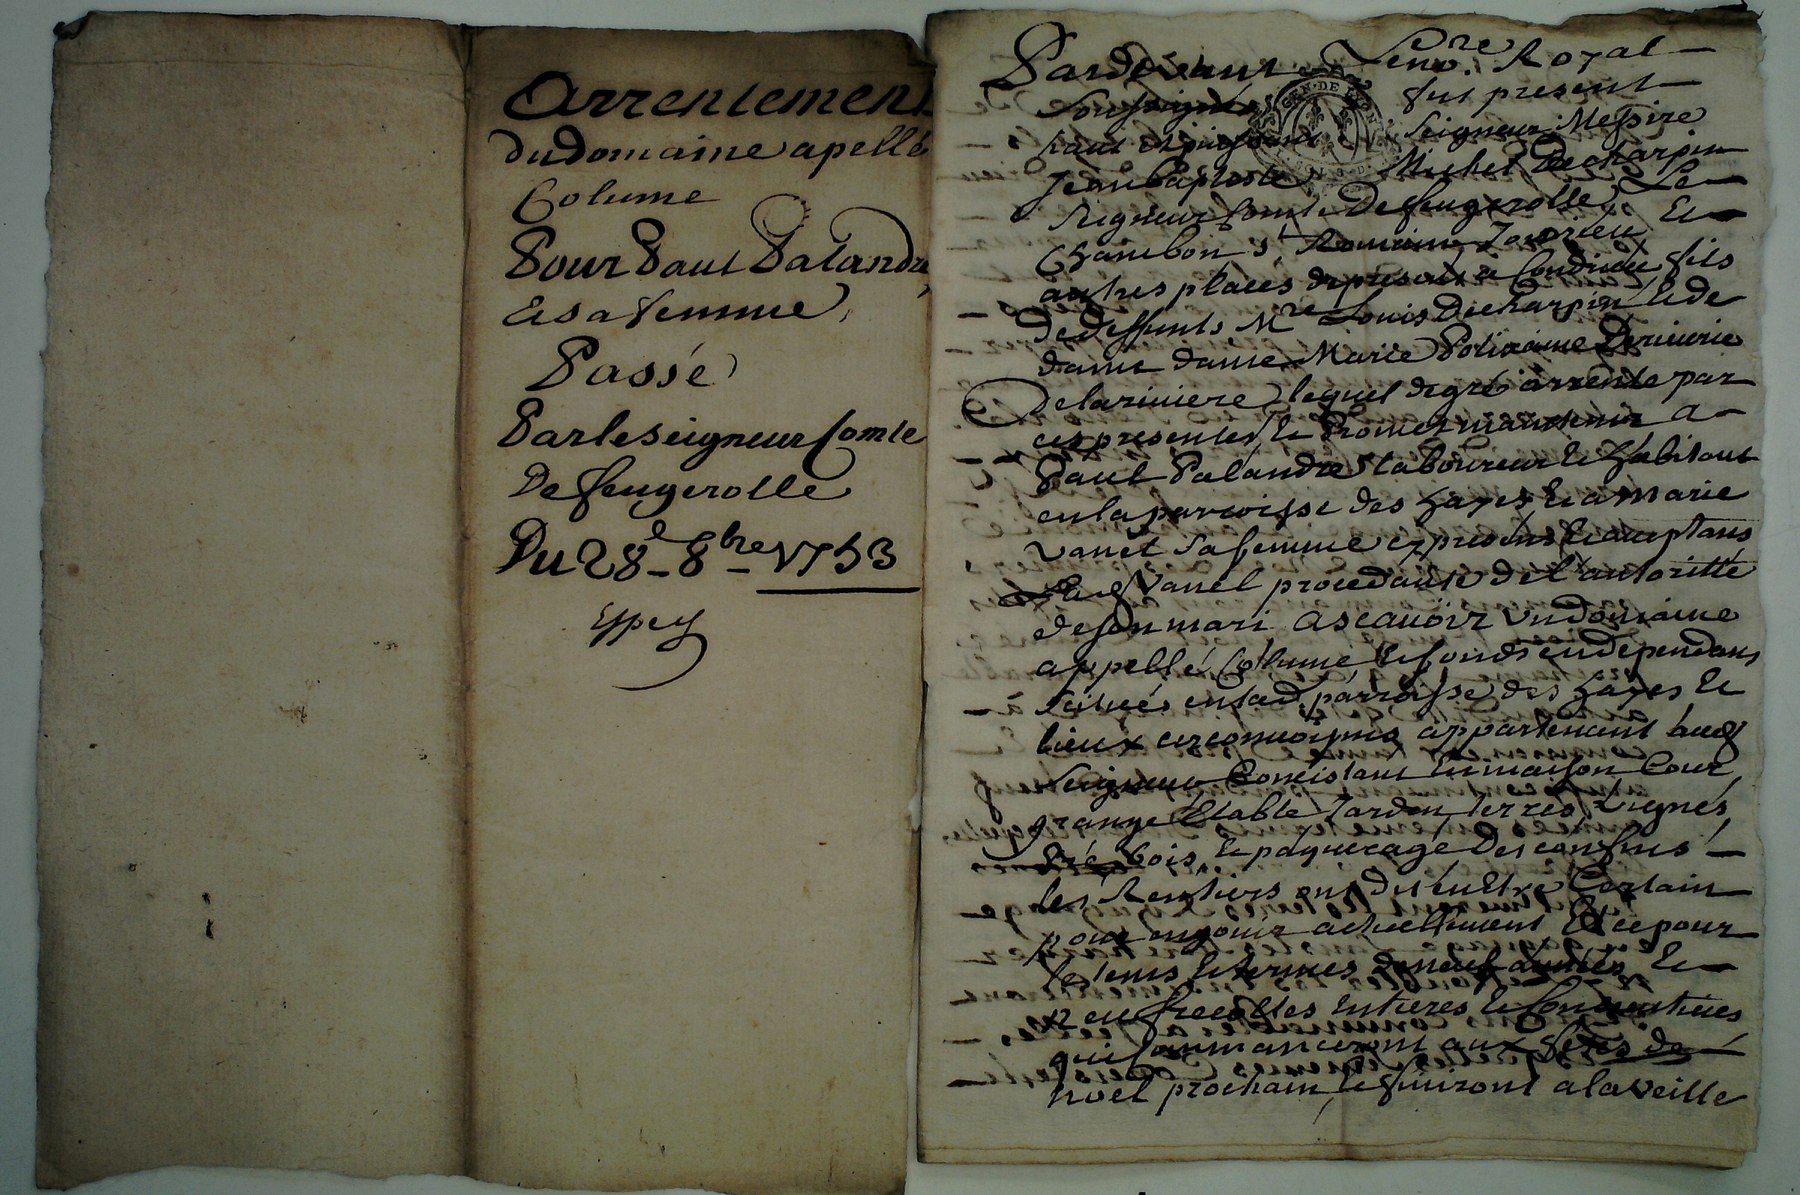 Arrentement
du domaine apellé
Colume
Pour Paul Palandre
Et sa femme,
Passé
Par le seigneur Comte
De feugerolle
Du 28e 8bre 1753
Pardevant Le no.re Royal
soussigné fut present
haut et puissant seigneur Messire
Jean Baptiste Michel Decharpin
seigneur Comte De feugerolle, Le
Chambon St Romain Et
autres places depresent a Condrieu fils
De deffunts Mre Louis Decharpin Et de
dame dame Marie Polixaine
Delariviere lequel de gré arrente par
ces presentes et Promet maintenir a
Paul Palandre Laboureur et habitant
en la parroisse des hayes, Et a Marie
Vanel sa femme cy presens Et acceptans
Vanel procedante de l'autoritté
de son mari Ascavoir Un domaine
appellé Colume Et fonds en dependans
scitués en lad. parroisse des hayes Et
lieux circonvoisins appartenant aud
seigneur Concistant En maison Cour,
grange Etable Jardin, terres, Vignes,
bois, Et paquerage Des confins
les Rentiers ont dit être Certain
pour en jouir actuellement Et ce pour
le tems Et termes de neuf années Et
neuf recoltes entieres Et consecutives
qui Commanceront aux fetes de
noel prochain, Et finiront a la veille
GEN. DE LYON